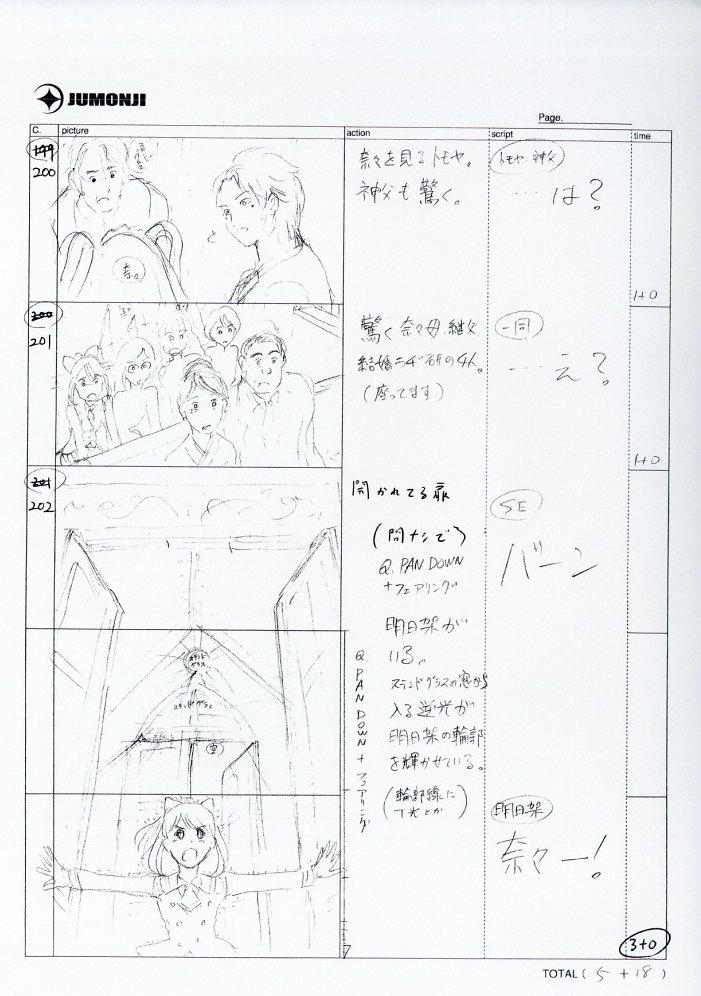 JUMONJI
Page.
C. picture action script time
199
200
奈々
と
奈々を見るトモヤ。
神父も驚く。
トモヤ・神父
…は?
1+0
200
201
驚く奈々母、継父
結婚ラヂ研の4人。
(座ってます)
一同
…え?
1+0
201
202
開かれてる扉
(間ナシで)
Q. PAN DOWN
+フェアリング
明日架が
いる。
ステンドグラスの窓から
入る逆光が
明日架の輪郭
を輝かせている。
(輪郭線に
T光とか)
Q. PAN DOWN + フェアリング
SE
バーン
ステンドグラス
ステンドグラス
空
明日架
奈々ー!
3+0
TOTAL ( 5 + 18 )